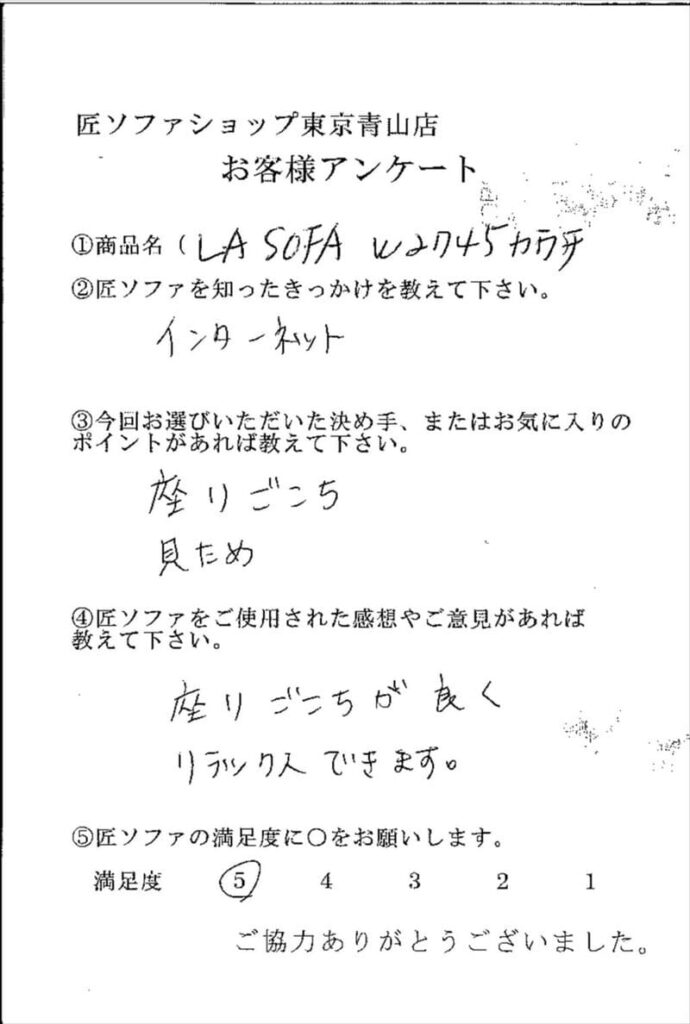 匠ソファショップ東京青山店
お客様アンケート
①商品名（LA SOFA W2745カウチ
②匠ソファを知ったきっかけを教えて下さい。
インターネット
③今回お選びいただいた決め手、またはお気に入りの
ポイントがあれば教えて下さい。
座りごこち
見ため
④匠ソファをご使用された感想やご意見があれば
教えて下さい。
座りごこちが良く
リラックスできます。
⑤匠ソファの満足度に○をお願いします。
満足度 5 4 3 2 1
ご協力ありがとうございました。